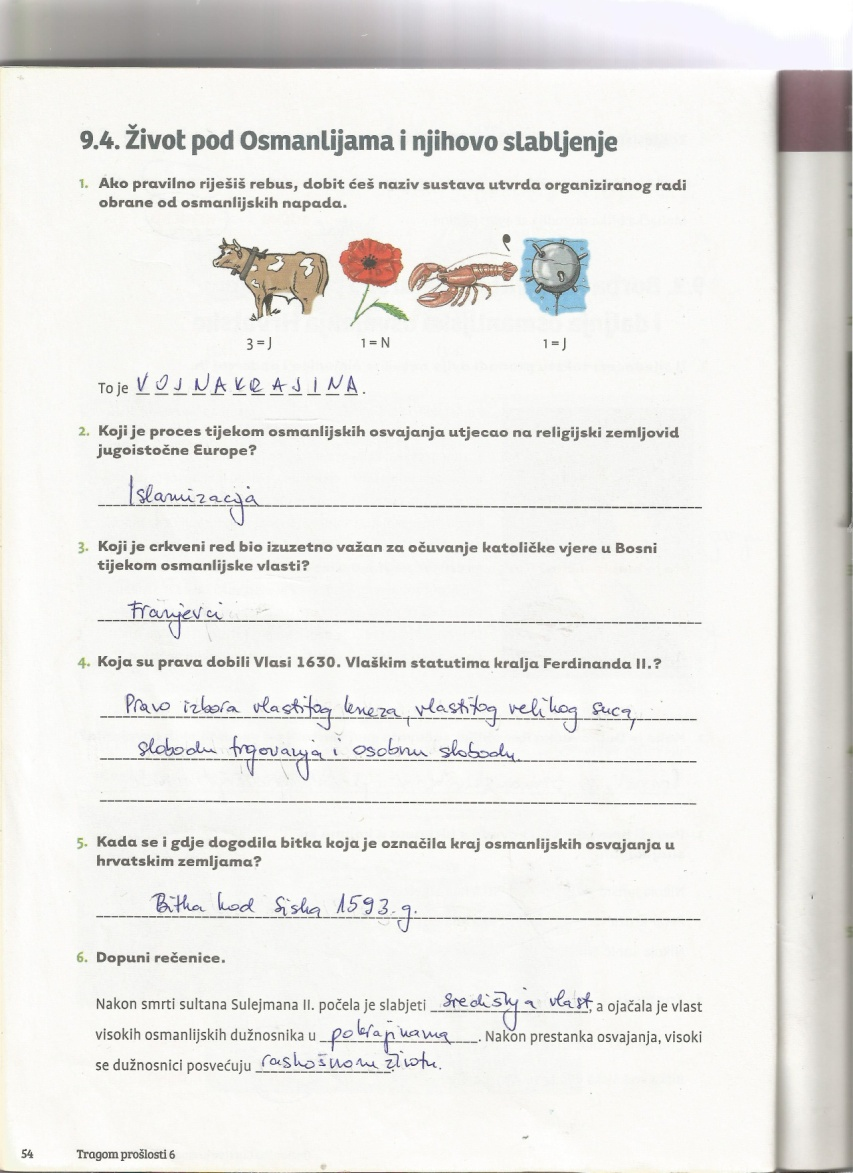 9.4. Život pod Osmanlijama i njihovo slabljenje
1. Ako pravilno riješiš rebus, dobit ćeš naziv sustava utvrda organiziranog radi
obrane od osmanlijskih napada.
,
3 = J 1 = N 1 = J
To je V O J N A K R A J I N A.
2. Koji je proces tijekom osmanlijskih osvajanja utjecao na religijski zemljovid
jugoistočne Europe?
Islamizacija
3. Koji je crkveni red bio izuzetno važan za očuvanje katoličke vjere u Bosni
tijekom osmanlijske vlasti?
Franjevci
4. Koja su prava dobili Vlasi 1630. Vlaškim statutima kralja Ferdinanda II.?
Pravo izbora vlastitog kneza, vlastitog velikog suca,
slobodu trgovanja i osobnu slobodu.
5. Kada se i gdje dogodila bitka koja je označila kraj osmanlijskih osvajanja u
hrvatskim zemljama?
Bitka kod Siska 1593. g.
6. Dopuni rečenice.
Nakon smrti sultana Sulejmana II. počela je slabjeti središnja vlast, a ojačala je vlast
visokih osmanlijskih dužnosnika u pokrajinama. Nakon prestanka osvajanja, visoki
se dužnosnici posvećuju raskošnom životu.
54 Tragom prošlosti 6